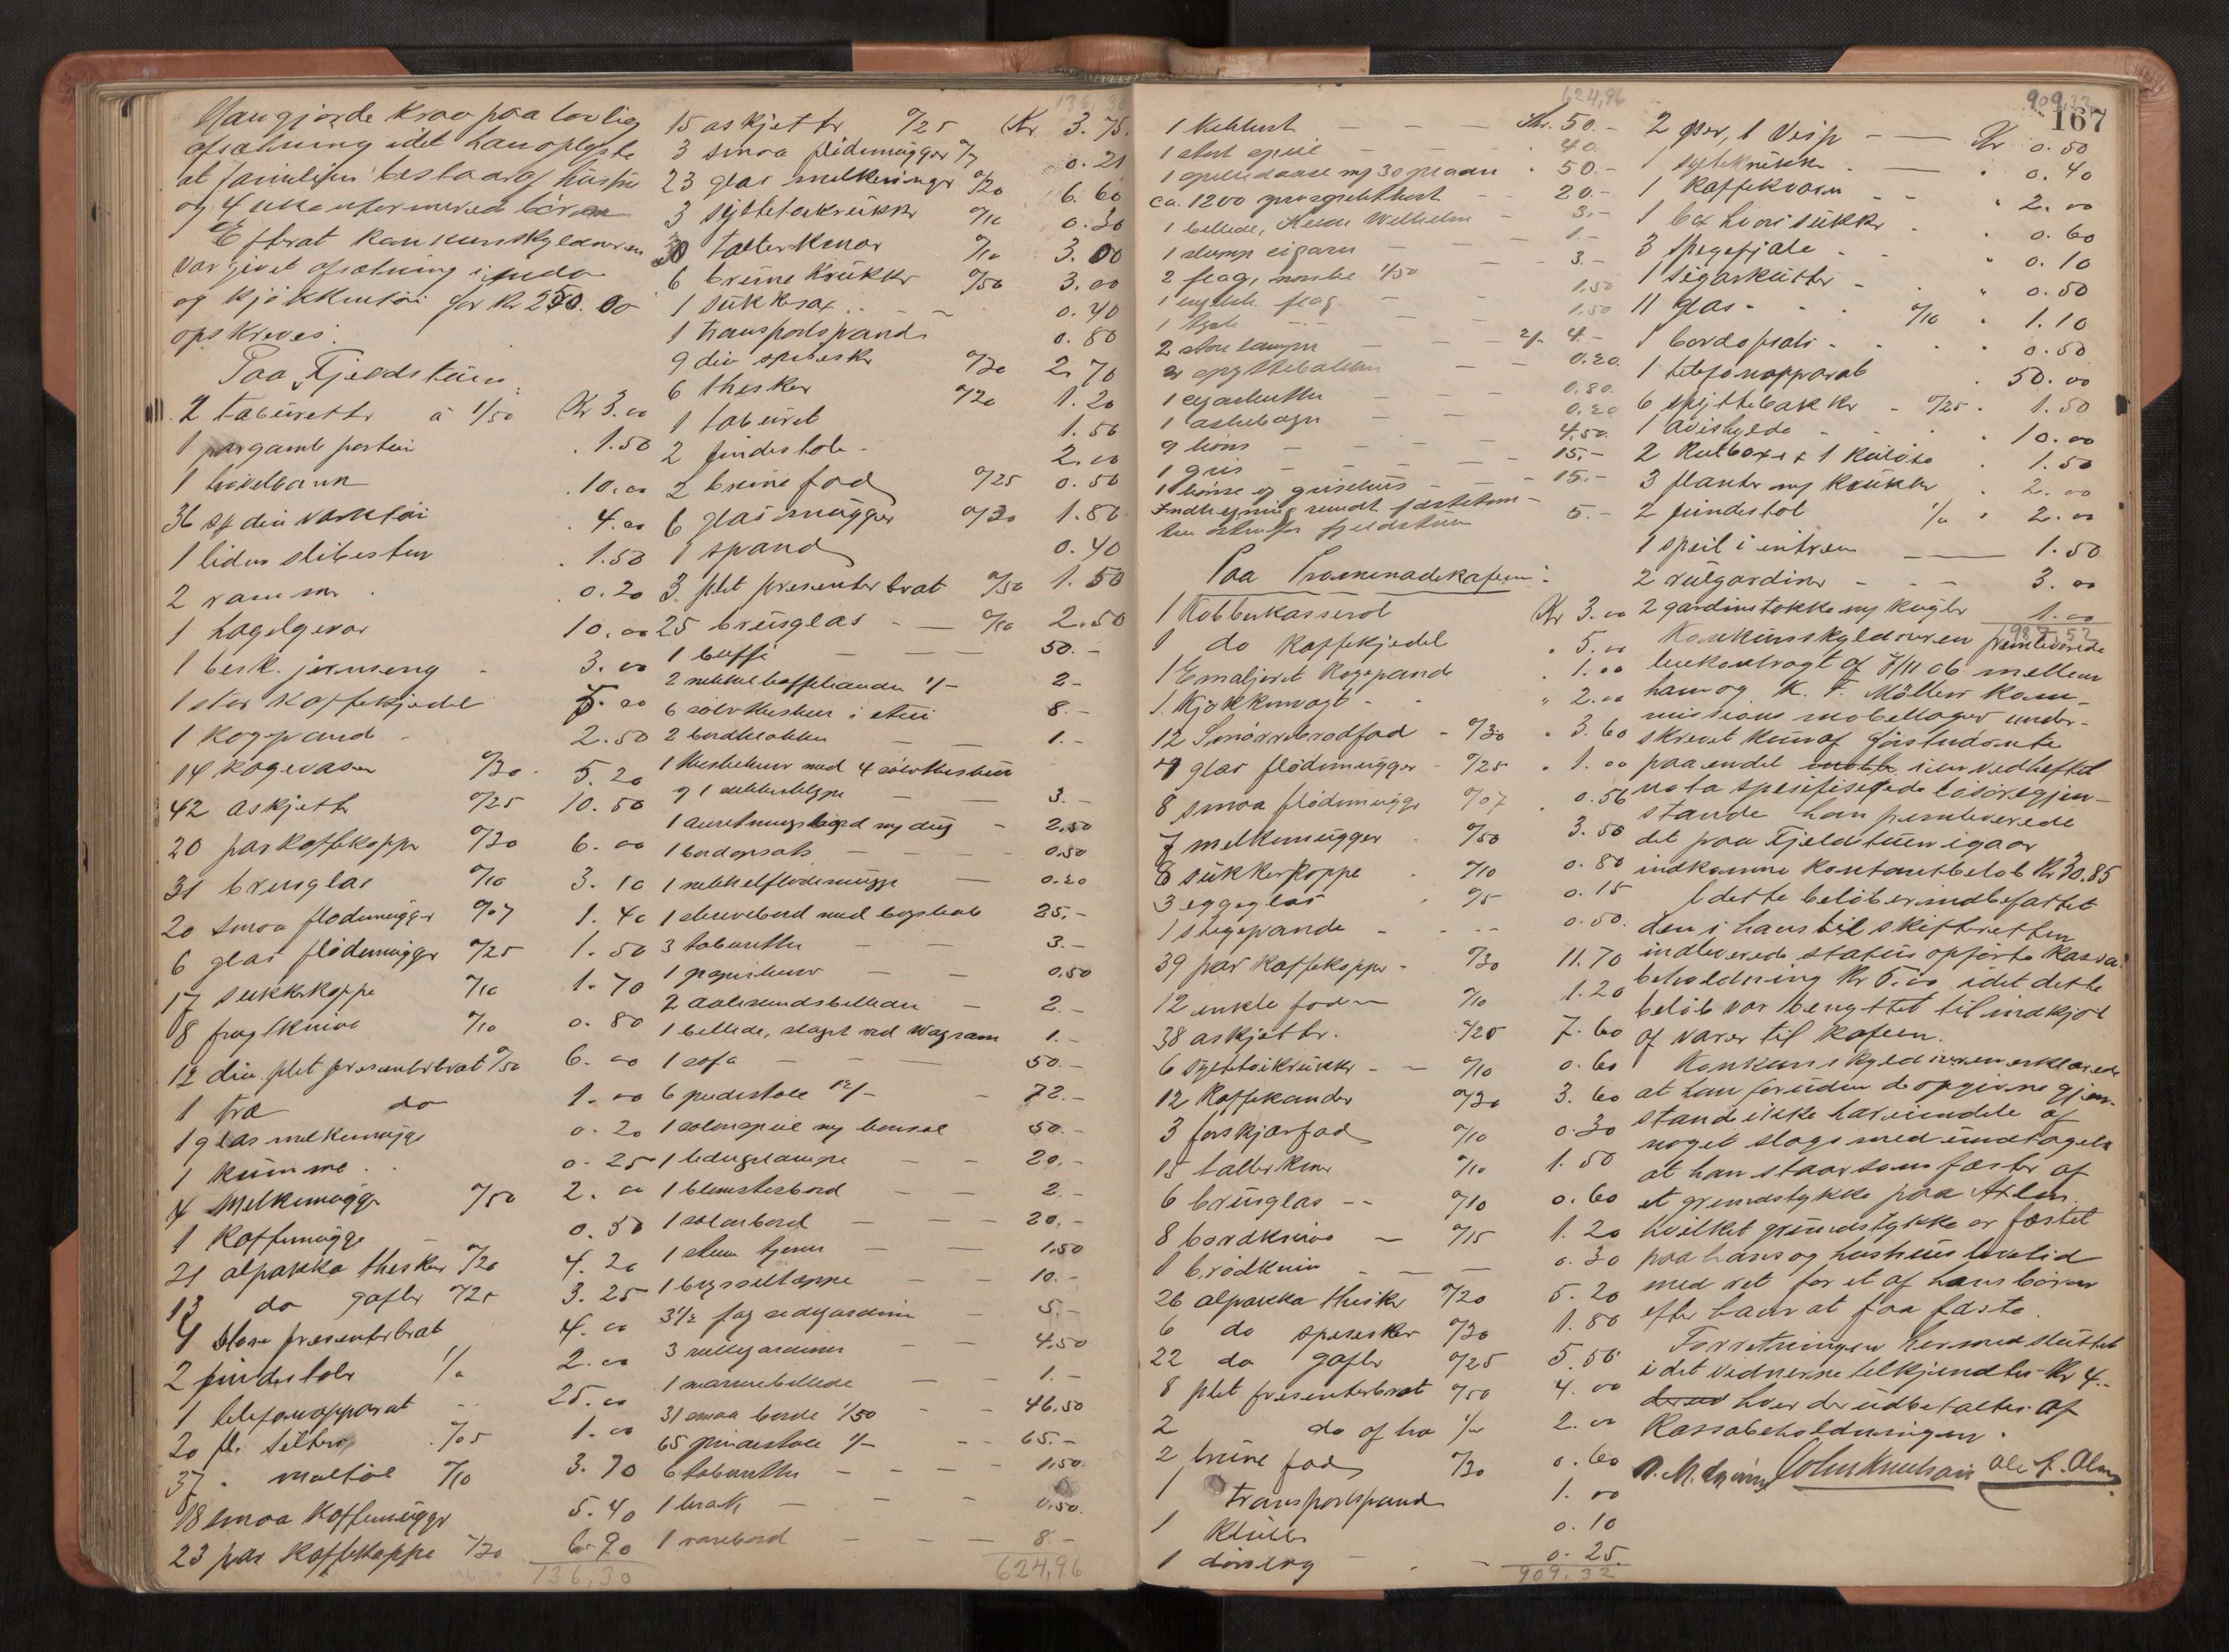 Han gjorde krav paa lovlig
afsætning idet han oplyste
at familien bestaar af hustru
og 4 børn
Efterat konkursskyldneren
var givet afsætning i
og kjøkkentøi for Kr 250.00
opskreves:
Paa Fjeldstuen.
2 taburetter à 1/50 Kr 3.00
1 par gamle 1.50
1 høvelbænk 10.00
36 div værktøi 4.00
1 liden slibesten 1.50
2 rammer 0.20
1 haglgevær 10.00
1 besk. jernseng 3.00
1 stor Kaffekjedel 5.00
1 Kogepande 2.50
14 Kagevaser 0/30 5.20
42 askjetter 0/25 10.50
20 par Kaffekopper 0/30 6.00
31 brusglas 0/10 3.10
20 smaa flødemugger 0/07 1.40
6 glas flødemugger 0/25 1.50
17 sukkerkopper 0/10 1.70
8 frugtknive 0/10 0.80
12 div. plet presenterbrat 0/50 6.00
1 træ do 1.00
1 glas melkemugge 0.20
1 Kumme 0.25
4 Melkemugger 0/50 2.00
1 Kaffemugge 0.50
21 alpakka theskeer 0/20 4.20
13 do gafler 0/25 3.25
4 store presenterbrat 4.00
2 pindestoler 1/00 2.00
1 telefonapparat 25.00
20 fl. selters 0/05 1.00
37 " maltøl 0/10 3.70
18 smaa Kaffemugger 5.40
23 par Kaffekopper 0/30 6.90
136,30
136,30
15 askjetter 0/25 Kr 3.75
3 smaa flødemugger 0/7 0.21
23 glas melkeringer 0/20 6.60
3 syltetøikrukker 0/10 0.30
30 tallerkener 0/10 3.00
6 brune Krukker 0/50 3.00
1 sukkersax 0.40
1 transportspand 0.80
9 div spiseskeer 0/30 2.70
6 theskeer 0/20 1.20
1 taburet 1.50
2 pindestole 2.00
2 brune fad 0/25 0.50
6 glasmugger 0/30 1.80
1 spand 0.40
3 plet presenterbrat 0/50 1.50
25 brusglas 0/10 2.50
1 buffé 50.-
2 nikkelkaffekander 1/- 2-
6 sølvtheskeer i etui 8.-
2 bordklokker 1.-
1 med 4 sølvtheskeer
og 1 3.-
1 anretningsbord m/ dug 2.50
1 bordopsats 0.50
1 nikkelflødemugge 0.20
1 skrivebord med bogskab 25.-
3 taburetter 3.-
1 papirkurv 0.50
2 aalesundsbilleder 2.-
1 billede, slaget ved Wagram 1.-
1 sofa 50.-
6 pudestole 12/- 72.-
1 salonspeil m/ konsol 50.-
1 hængelampe 20.-
1 blomsterbord 2.-
1 salonbord 20.-
1 1.50
1 brysseltæppe 10.-
3 1/2 fag gardiner 5.-
3 rullegardiner 4.50
1 marinebillede 1.-
31 smaa borde 1/50 46.50
65 pindestole 1/- 65.-
6 taburetter 1.50
1 0.50
1 8.-
624,96
624,96
1 Kr. 50.-
1 stort speil 40.-
1 spilledaase m/ 30 plader 50.-
ca. 1200 prospektkort 20.-
1 billede, Keiser Wilhelm 3.-
1 slump cigarer 1.-
2 flag, norske 1/50 3.-
1 engelsk flag 1.50
1 1.50
2 store lamper 2/- 4.-
2 spyttebakker 0.20
1 cigarkutter 0.80
1 askebæger 0.20
9 høns 4.50
1 gris 15.-
1 hønse og grisehus 15.-
Indhegning rundt
fjeldstuen 5.-
Paa Promenadekafeen:
1 Kobberkasserol Kr 3.00
1 do Kaffekjedel 5.00
1 Emaljeret Kogepande 1.00
1 Kjøkkenvægt 2.00
12 Smørrebrødfad 0/30 3.60
4 glas flødemugger 0/25 1.00
8 smaa flødemugger 0/07 0.56
7 melkemugger 0/50 3.50
8 sukkerkopper 0/10 0.80
3 eggeglas 0/5 0.15
1 stegepande 0.50
39 par Kaffekopper 0/30 11.70
12 enkle fade 0/10 1.20
38 askjetter 0/20 7.60
6 syltetøikrukker 0/10 0.60
12 Kaffekander 0/30 3.60
3 forskjærfad 0/10 0.30
15 tallerkener 0/10 1.50
6 brusglas 0/10 0.60
8 bordknive 0/15 1.20
1 brødkniv 0.30
26 alpakka theskeer 0/20 5.20
6 do spiseskeer 0/30 1.80
22 do gafler 0/25 5.50
8 plet presenterbrat 0/50 4.00
2 do af træ 1/00 2.00
2 brune fad 0/30 0.60
1 transportspand 1.00
1 0.10
1 dørslag 0.25
909.32
909,32
167
2 øser, 1 visp Kr 0.50
1 syltekrukke 0.40
1 Kaffekværn 2.00
1 sukker 0.60
3 spegefjæle 0.10
1 sigarkutter 0.50
11 glas 0/10 1.10
1 bordopsats 0.50
1 telefonapparat 50.00
6 spyttebakker 0/25 1.50
1 avishylde 10.00
2 Kulboxer + 1 Kuløse 1.50
3 planter m/ Krukker 2.00
2 pindestole 1/00 2.00
1 speil i entreen 1.50
2 rulgardiner 3.00
2 gardinstokke m/ kugler 1.00
987,52
Konkursskyldneren fremleverede
leiekontragt af 8/11 06 mellem
ham og K. F. Møllers Kom-
missions møbellager under-
skrevet kun af førstnævnte
paa endel i en vedheftet
nota spesifiserede løsøregjen-
stande han fremleverede
det paa Fjeldstuen igaar
indkomne kontantbeløb Kr 30.85
I dette beløb er indbefattet
den i hans til skifteretten
indleverede status opførte kassa-
beholdning Kr 5.00 idet dette
beløb var benyttet til indkjøb
af varer til kafeen.
Konkursskyldneren erklærede
at han foruden de opgivne gjen-
stande ikke har eiendele af
noget slags med undtagelse
at han staar som fæster af
et grundstykke paa Axlen,
hvilket grundstykke er fæstet
paa hans og hustrus levetid
med ret for et af hans børn
efter ham at faa fæste.
Forretningen hermed sluttet
idet vidnerne tilkjendtes Kr 4.-
hver der udbetaltes af
Kassabeholdningen.
John Knudsen Ole A. Alme